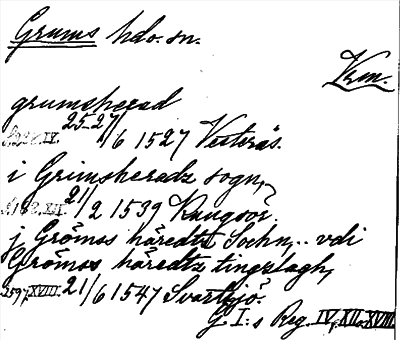 Grums hdo. sn.
Vrm.
grumsherad
IV. 25-27/6 1527 Vesterås.
i Grimsheradz sogn,
XII. 21/2 1539 Kungsör.
j Grömss häredtz Sochn,.. vdi
Grömss häredtz tingzlagh,
XVIII. 21/6 1547 Svartsjö.
G. I:s Reg. IV, XII o. XVIII